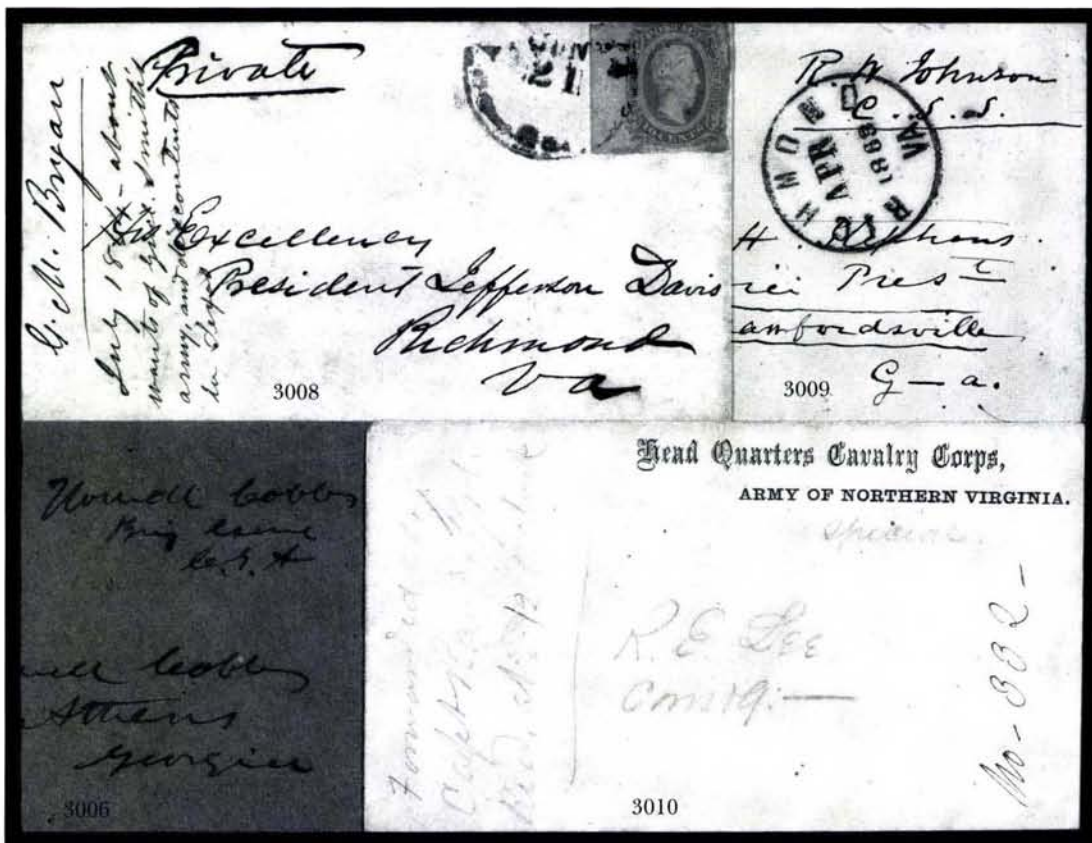 G. M. Bryan
In 1864 - about
wants of Gen. Smith's
army, and discontents
in Texas
Private
21
His Excellency
President Jefferson Davis
Richmond
Va
3008
R W Johnson
C. S. S.
RICHMOND
APR
1863
VA
H. Stephens
Pres t
awfordsville
G—a.
3009
Howell Cobb
Brig Genl
C. S. A
well Cobb
Athens
Georgia
3006
Head Quarters Cavalry Corps,
ARMY OF NORTHERN VIRGINIA.
Special.
R. E. Lee
Comdg:—
No - 332 -
Forwarded
Capt
3010